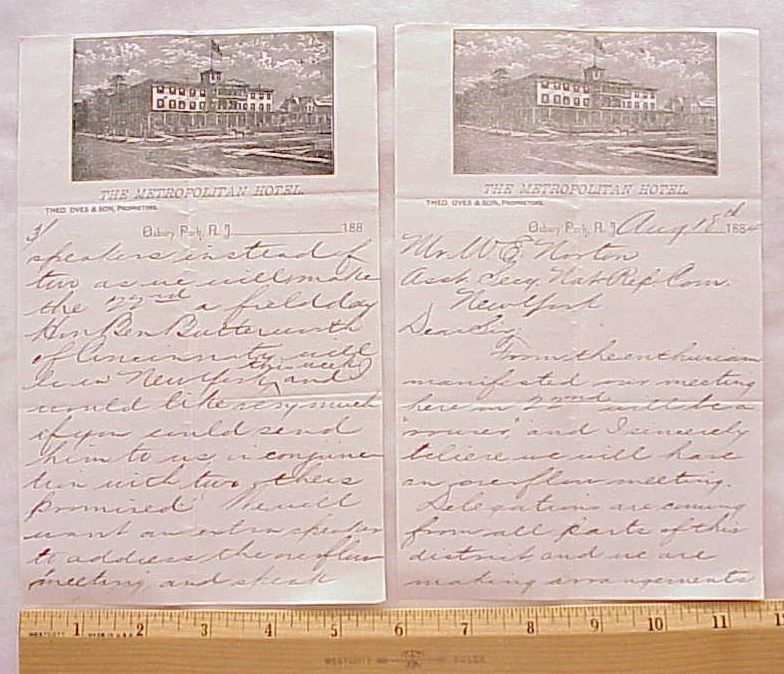 THE METROPOLITAN HOTEL.
THEO. OVES & SON, PROPRIETORS.
Asbury Park, N. J. 188
3/
speakers instead of
two as we will make
the 22nd a field day
Hon Ben Butterworth
of Cincinnati will
be in New York this week and
would like very much
if you could send
him to us in conjunc-
tion with two others
promised We will
want an extra speaker
to address the overflow
meeting, and speak
THE METROPOLITAN HOTEL.
THEO. OVES & SON, PROPRIETORS.
Asbury Park, N. J. Aug 18th 1884
Mr. W. E. Norton
Asst. Secy. Nat Rep. Com.
New York
Dear Sir,
From the enthusiasm
manifested our meeting
here on 22nd will be a
"rouser" and I sincerely
believe we will have
an overflow meeting.
Delegations are coming
from all parts of this
district and we are
making arrangements
WESTCOTT MADE IN U.S.A.
1 2 3 4 5 6 7 8 9 10 11
RULER